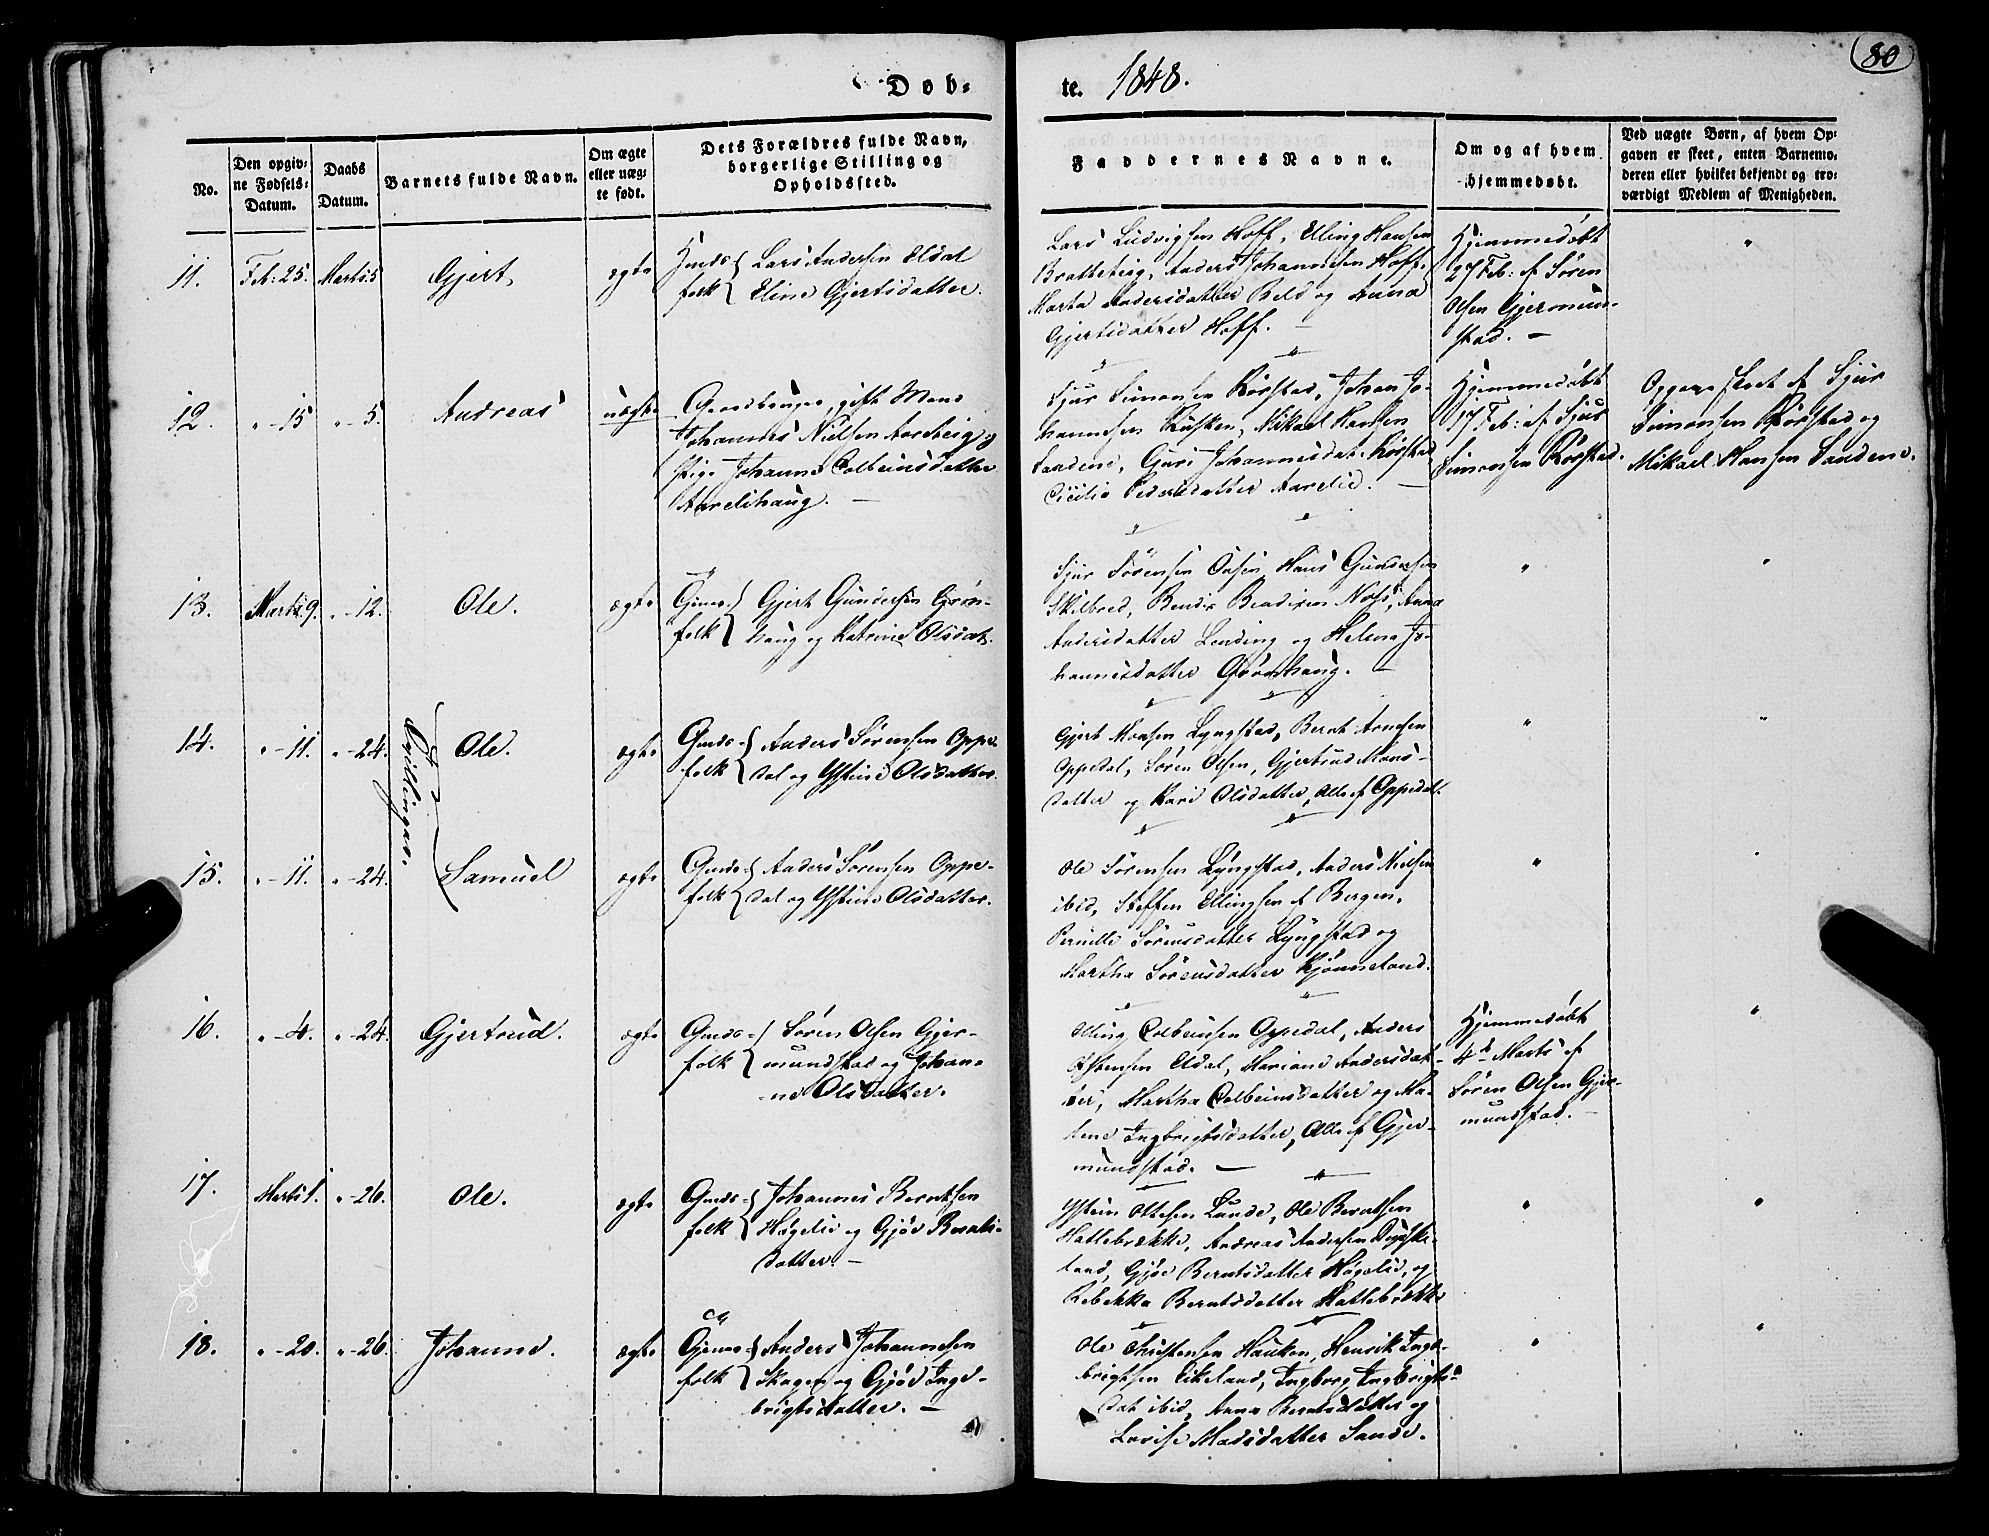 Døb-
te. 1848.
80
No.
Den opgiv-
ne Fødsels-
Datum.
Daabs
Datum.
Barnets fulde Navn.
Om ægte
eller uæg-
te født.
Dets Forældres fulde Navn,
borgerlige Stilling og
Opholdssted.
Faddernes Navne.
Om og af hvem
hjemmedøbt.
Ved uægte Børn, af hvem Op-
gaven er skeet, enten Barnemo-
deren eller hvilket bekjendt og tro-
værdigt Medlem af Menigheden.
11.
Feb: 25.
Marts 5
Gjert,
ægte
folk
Lars Andersen Eldal
Eline Gjertsdatter.
Lars Ludvigsen Hoff, Elling Hansen
Bratteteig, Anders Johannesen Hoff,
Marta Andersdatter og Anna
Gjertsdatter Hoff. —
Hjemmedøbt
27 Feb: af Søren
Olsen Gjermun-
stad. —
"
12.
" - 15
" - 5.
Andreas
uægte
gift Mand
Johannes Nielsen og
Pige Johanne Colbeinsdatter
—
Sjur Simonsen Rørstad, Johan Jo-
hannesen Mikael Hansen
Sandene, Guri Johannesdat: Rørstad
Cicilie Pedersdatter Aarelid. —
Hjemmedøbt
17 Feb: af Sjur
Simonsen Rørstad.
Opgave skeet af Sjur
Simonsen Rørstad og
Mikael Hansen Sandene.
13.
Marts 9.
" - 12.
Ole.
ægte
folk
Gjert Gundersen Grøn-
haug og Katrine Olsdat.
Sjur Sørensen Hans Gundersen
Skilbred, Bendix Bendixen Anna
Andersdatter Lending og Helena Jo-
hannesdatter Grønhaug. —
"
"
14.
" - 11.
" - 24.
Tvillinger.
Ole.
ægte
Gaards-
folk
Anders Sørensen Oppe-
dal og Ystine Olsdatter.
Gjert Monsen Lyngstad, Bernt Arnesen
Oppedal, Søren Olsen, Gjertrud Mons-
datter og Kari Olsdatter, Alle af Oppedal.
"
"
15.
" - 11.
" - 24.
Samuel
ægte
Gaards-
folk
Anders Sørensen Oppe-
dal og Ystine Olsdatter.
Ole Sørensen Lyngstad, Anders Nielsen
ibid, Steffen Ellingsen af Bergen,
Pernille Sørensdatter Lyngstad og
Martha Sørensdatter Kjønneland.
"
16.
" - 4.
" - 24.
Gjertrud.
ægte
Gaards-
folk
Søren Olsen Gjer-
mundstad og Johan-
ne Olsdatter.
Elling Colbeinsen Oppedal, Anders
Eldal, Mariane Andersdat-
ter, Martha Colbeinsdatter og Ma-
lene Ingbrigtsdatter, Alle af Gjer-
mundstad. —
Hjemmedøbt
4de Marts af
Søren Olsen Gjer-
mundstad. —
"
17.
Marts 1.
" - 26.
Ole.
ægte
Gaards-
folk
Johannes Berntsen
Høgelid og Gjøe Bernts-
datter. —
Ystein Ottesen Lunde, Ole Berntsen
Hatlebrække, Andreas Andersen
land, Gjøe Berntsdatter Høgelid, og
Rebekka Berntsdatter Hatlebrække
"
"
18.
" - 20.
" - 26.
Johanne.
ægte
folk
Anders Johannesen
Skagen og Gjøe Inge-
brigtsdatter. —
Ole Christensen Hauken, Henrik Inge-
brigtsen Eikeland, Ingborg Ingbrigts-
dat ibid, Anna Berntsdatter og
Lovise Madsdatter Sande.
"
"